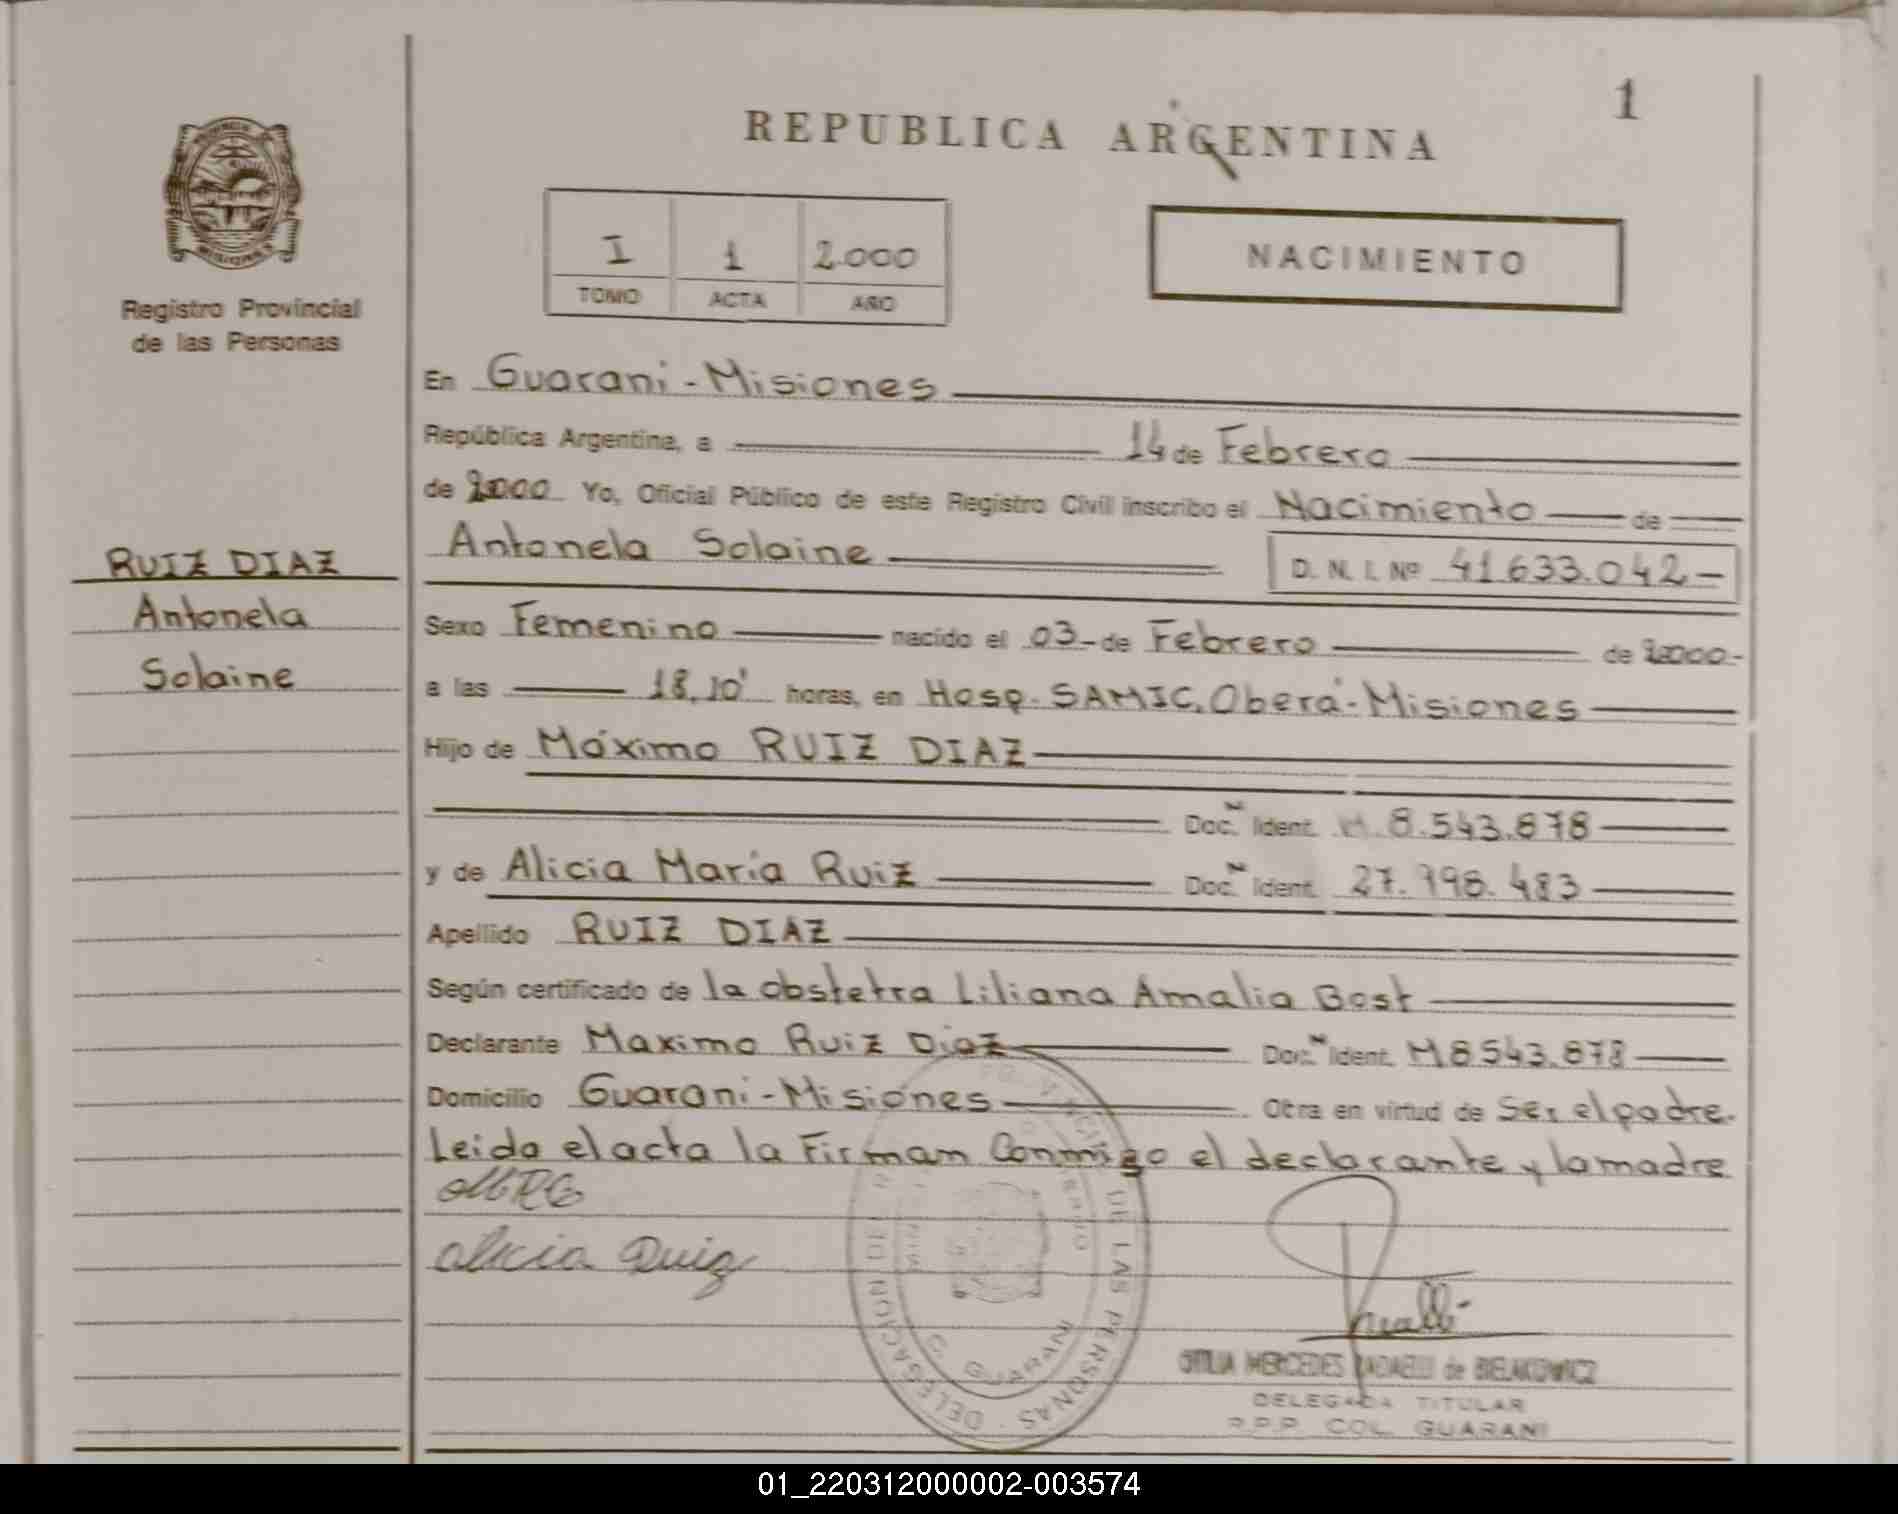 1
REPUBLICA ARGENTINA
I 1 2.000
TOMO ACTA AÑO
NACIMIENTO
Registro Provincial
de las Personas
En Guarani - Misiones
República Argentina, a 14 de Febrero
de 2.000 Yo, Oficial Público de este Registro Civil inscribo el Nacimiento de
Antonela Solaine D. N. I. Nº 41.633.042-
RUIZ DIAZ
Antonela
Solaine
Sexo Femenino nacido el 03- de Febrero de 2.000-
a las 18,10' horas, en Hosp. SAMIC. Oberá - Misiones
Hijo de Máximo RUIZ DIAZ
Doc. Ident. M. 8.543.878
y de Alicia María Ruiz Doc. Ident. 27.998.483
Apellido RUIZ DIAZ
Según certificado de la obstetra Liliana Amalia Bost
Declarante Maximo Ruiz Diaz Doc. Ident. M 8.543.878
Domicilio Guarani - Misiones Obra en virtud de Ser el padre.
Leida el acta la Firman Conmigo el declarante y la madre
Alicia Ruiz
DE LAS PERSONAS - DELEGACION
G. GUARANI
OTILIA MERCEDES RADAELLI de BIELAKOWICZ
DELEGADA TITULAR
R.P.P. COL. GUARANI
01_220312000002-003574